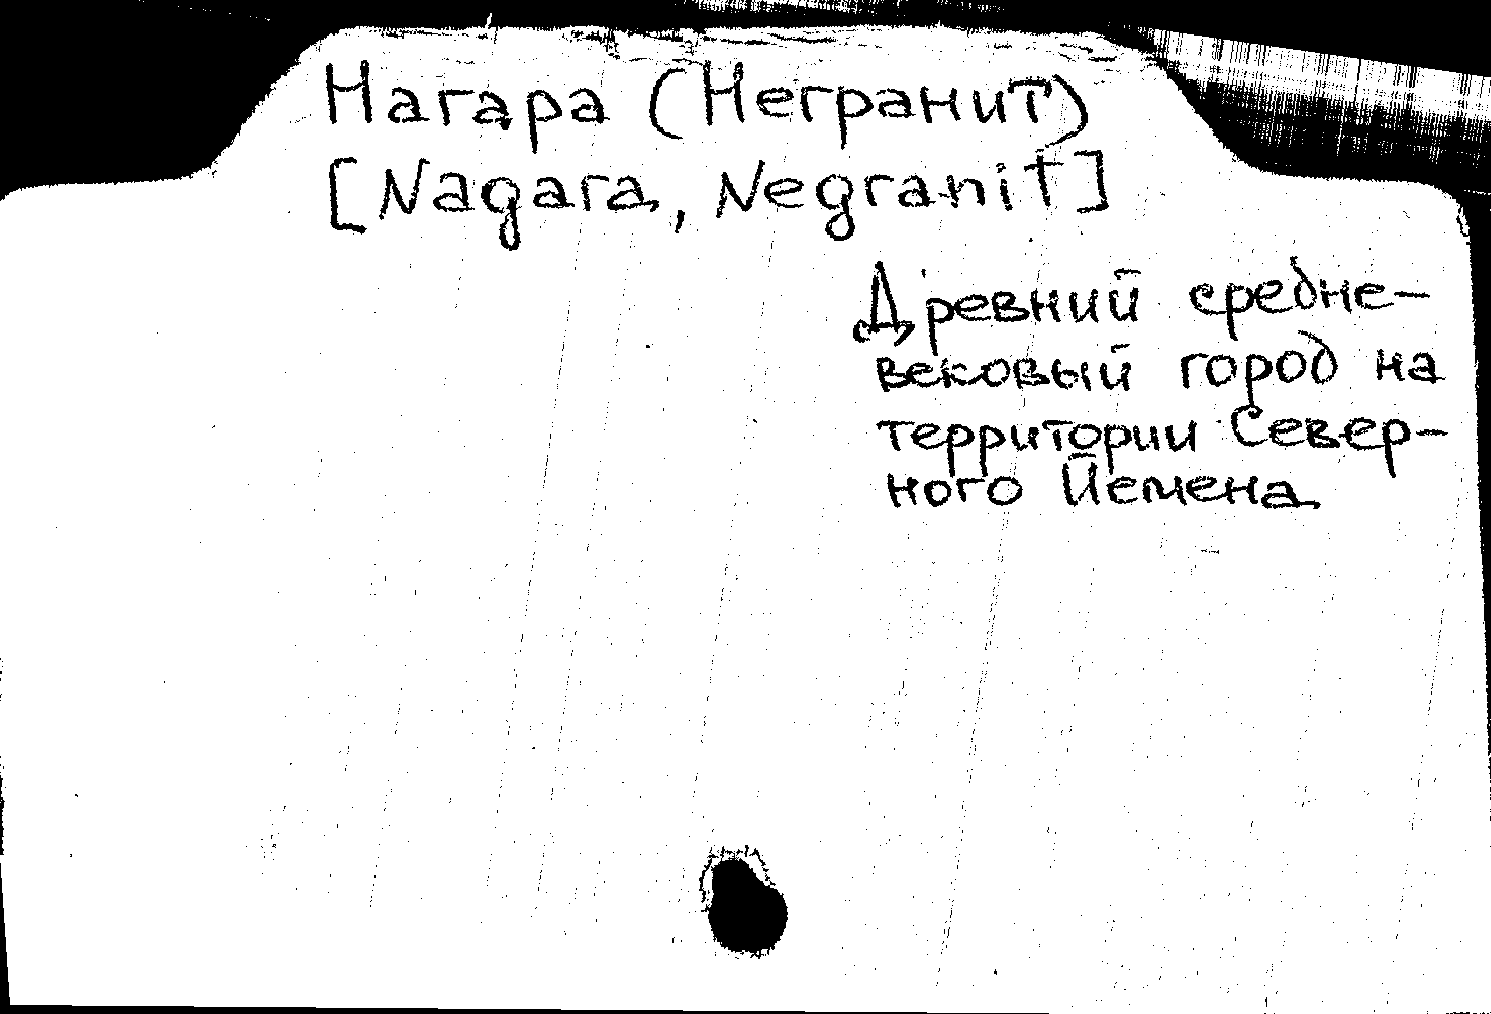 Нагара (Негранит)
[Nagara, Negranit]
Древний средне-
вековый город на
территории Север-
ного Йемена